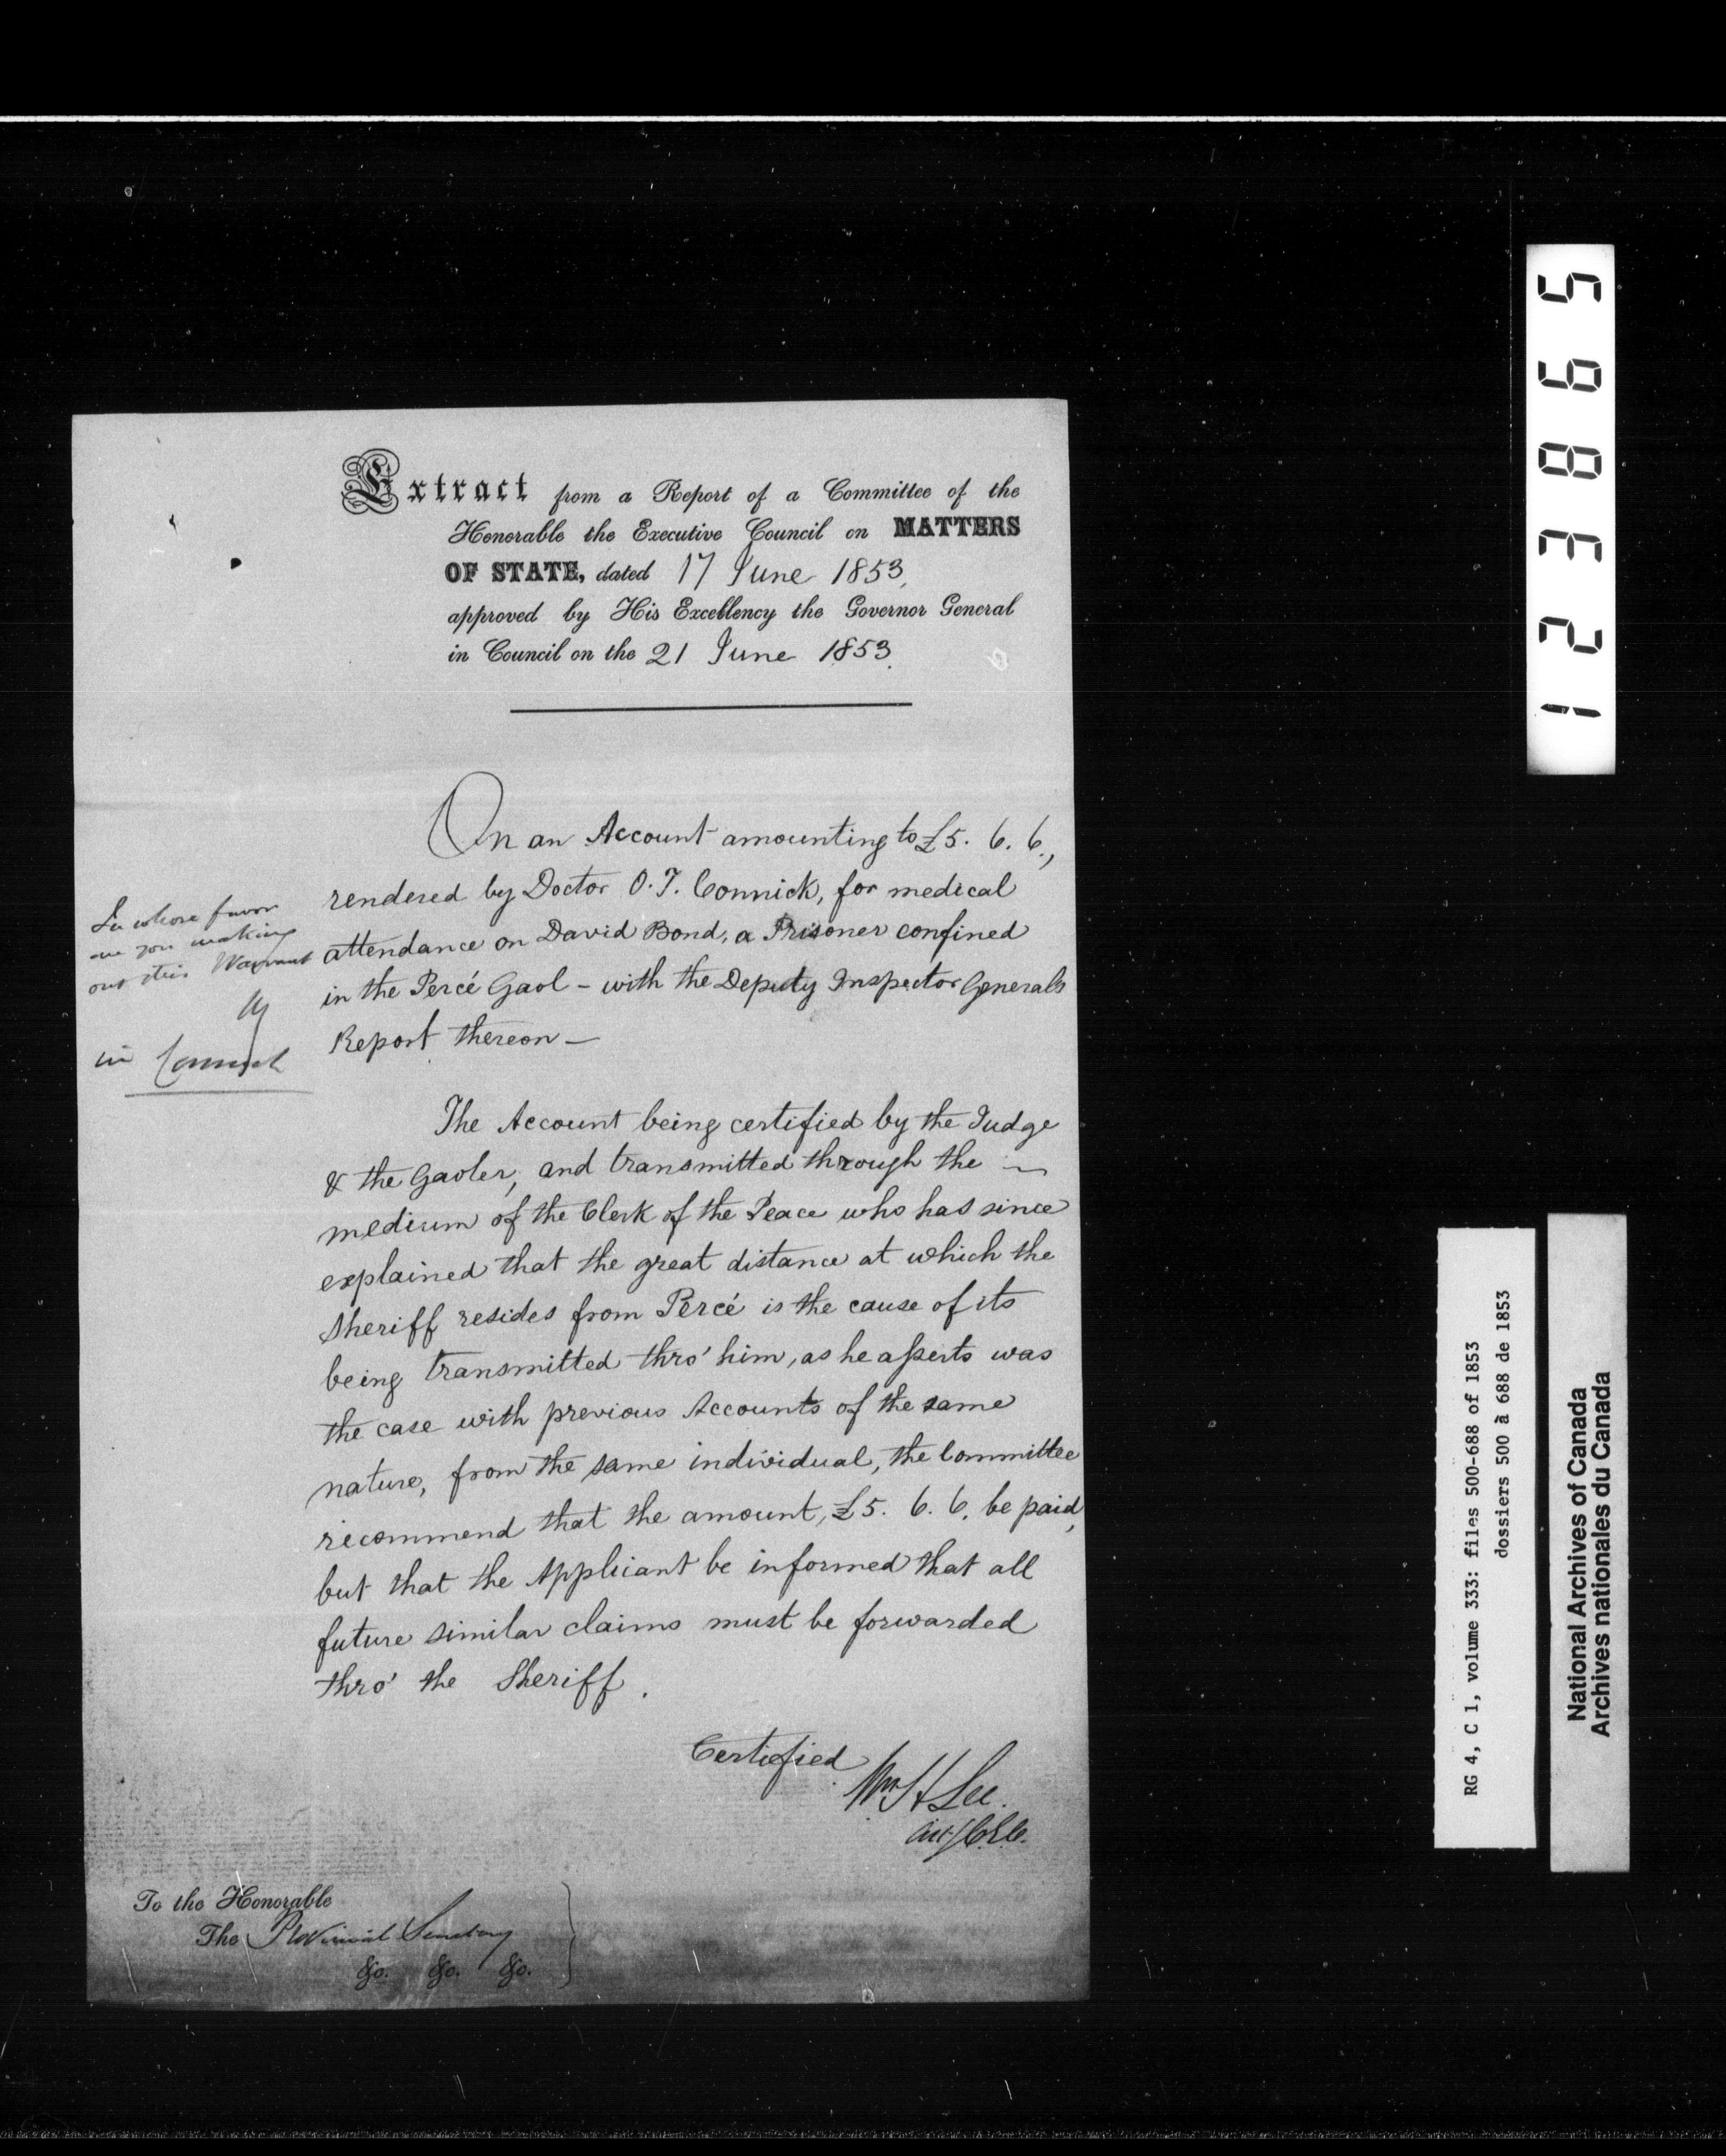 Extract from a Report of a Committee of the
Honorable the Executive Council on MATTERS
OF STATE, dated 17 June 1853,
approved by His Excellency the Governor General
in Council on the 21 June 1853.
On an Account amounting to £5. 6. 6.,
rendered by Doctor O. T. Connick, for medical
attendance on David Bond, a Prisoner confined
in the Percé Gaol - with the Deputy Inspector Generals
Report thereon —
In whose favor
are you making
out this Warrant
in Connick
The Account being certified by the Judge
& the Gaoler, and transmitted through the —
medium of the Clerk of the Peace who has since
explained that the great distance at which the
Sheriff resides from Percé is the cause of its
being transmitted thro' him, as he asserts was
the case with previous Accounts of the same
nature, from the same individual, the Committee
recommend that the amount, £5. 6. 6. be paid,
but that the Applicant be informed that all
future similar claims must be forwarded
thro' the Sheriff.
Certified
Wm H Lee.
To the Honorable
The Provincial Secretary
&c. &c. &c.
123865
RG 4, C 1, volume 333: files 500-688 of 1853
dossiers 500 à 688 de 1853
National Archives of Canada
Archives nationales du Canada